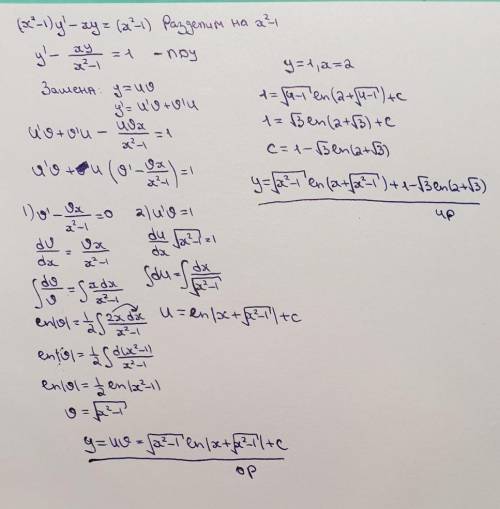 (x²-1)y' - xy = (x²-1) Разделим на x²-1
y' - xy/(x²-1) = 1 - ЛДУ
Замена: y = uϑ
y' = u'ϑ + ϑ'u
u'ϑ + ϑ'u - uϑx/(x²-1) = 1
u'ϑ + u(ϑ' - ϑx/(x²-1)) = 1
1) ϑ' - ϑx/(x²-1) = 0
dϑ/dx = ϑx/(x²-1)
∫dϑ/ϑ = ∫xdx/(x²-1)
ln|ϑ| = 1/2 ∫2xdx/(x²-1)
ln|ϑ| = 1/2 ∫d(x²-1)/(x²-1)
ln|ϑ| = 1/2 ln|x²-1|
ϑ = √(x²-1)
2) u'ϑ = 1
du/dx √(x²-1) = 1
∫du = ∫dx/√(x²-1)
u = ln|x+√(x²-1)| + c
y = uϑ = √(x²-1) ln|x+√(x²-1)| + c
ор
y = 1, x = 2
1 = √(4-1) ln(2+√(4-1)) + c
1 = √3 ln(2+√3) + c
c = 1 - √3 ln(2+√3)
y = √(x²-1) ln(x+√(x²-1)) + 1 - √3 ln(2+√3)
чр